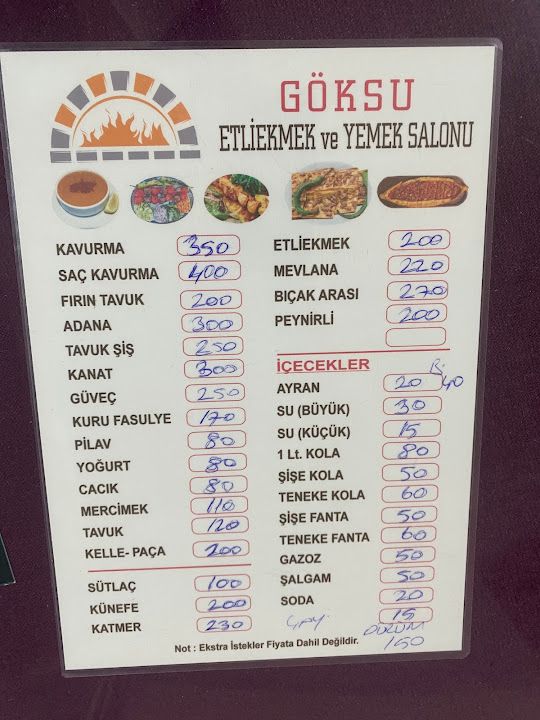 GÖKSU
ETLİEKMEK ve YEMEK SALONU
KAVURMA 350
SAÇ KAVURMA 400
FIRIN TAVUK 200
ADANA 300
TAVUK ŞİŞ 250
KANAT 300
GÜVEÇ 250
KURU FASULYE 170
PİLAV 80
YOĞURT 80
CACIK 80
MERCİMEK 110
TAVUK 120
KELLE- PAÇA 200
SÜTLAÇ 100
KÜNEFE 200
KATMER 230
ETLİEKMEK 200
MEVLANA 220
BIÇAK ARASI 270
PEYNİRLİ 200
İÇECEKLER
AYRAN 20 B. 40
SU (BÜYÜK) 30
SU (KÜÇÜK) 15
1 Lt. KOLA 80
ŞİŞE KOLA 50
TENEKE KOLA 60
ŞİŞE FANTA 50
TENEKE FANTA 60
GAZOZ 50
ŞALGAM 50
SODA 20
ÇAY 15
DÜRÜM
150
Not : Ekstra İstekler Fiyata Dahil Değildir.